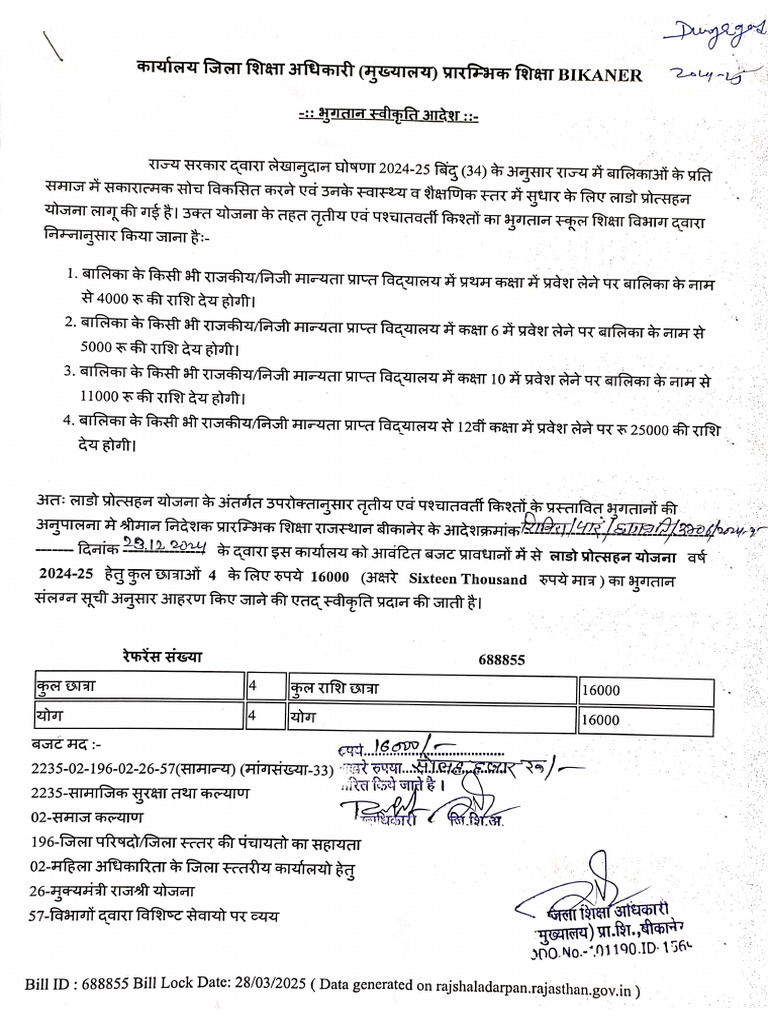 2024-25
कार्यालय जिला शिक्षा अधिकारी (मुख्यालय) प्रारम्भिक शिक्षा BIKANER
-:: भुगतान स्वीकृति आदेश ::-
राज्य सरकार द्वारा लेखानुदान घोषणा 2024-25 बिंदु (34) के अनुसार राज्य में बालिकाओं के प्रति
समाज में सकारात्मक सोच विकसित करने एवं उनके स्वास्थ्य व शैक्षणिक स्तर में सुधार के लिए लाडो प्रोत्सहन
योजना लागू की गई है। उक्त योजना के तहत तृतीय एवं पश्चातवर्ती किश्तों का भुगतान स्कूल शिक्षा विभाग द्वारा
निम्नानुसार किया जाना हैः-
1. बालिका के किसी भी राजकीय/निजी मान्यता प्राप्त विद्यालय में प्रथम कक्षा में प्रवेश लेने पर बालिका के नाम
से 4000 रू की राशि देय होगी।
2. बालिका के किसी भी राजकीय/निजी मान्यता प्राप्त विद्यालय में कक्षा 6 में प्रवेश लेने पर बालिका के नाम से
5000 रू की राशि देय होगी।
3. बालिका के किसी भी राजकीय/निजी मान्यता प्राप्त विद्यालय में कक्षा 10 में प्रवेश लेने पर बालिका के नाम से
11000 रू की राशि देय होगी।
4. बालिका के किसी भी राजकीय/निजी मान्यता प्राप्त विद्यालय से 12वीं कक्षा में प्रवेश लेने पर रू 25000 की राशि
देय होगी।
अतः लाडो प्रोत्सहन योजना के अंतर्गत उपरोक्तानुसार तृतीय एवं पश्चातवर्ती किश्तों के प्रस्तावित भुगतानों की
अनुपालना मे श्रीमान निदेशक प्रारम्भिक शिक्षा राजस्थान बीकानेर के आदेशक्रमांक
------- दिनांक 23.12.2024 के द्वारा इस कार्यालय को आवंटित बजट प्रावधानों में से लाडो प्रोत्सहन योजना वर्ष
2024-25 हेतु कुल छात्राओं 4 के लिए रुपये 16000 (अक्षरे Sixteen Thousand रुपये मात्र ) का भुगतान
संलग्न सूची अनुसार आहरण किए जाने की एतद् स्वीकृति प्रदान की जाती है।
रेफरेंस संख्या 688855
कुल छात्रा 4 कुल राशि छात्रा 16000
योग 4 योग 16000
बजट मद :-
रुपये 16000/-
2235-02-196-02-26-57(सामान्य) (मांगसंख्या-33)
रुपया सोलह हजार रू/-
2235-सामाजिक सुरक्षा तथा कल्याण
किये जाते है।
02-समाज कल्याण
जि.शि.अ.
196-जिला परिषदो/जिला स्त्तर की पंचायतो का सहायता
02-महिला अधिकारिता के जिला स्त्तरीय कार्यालयो हेतु
26-मुक्यमंत्री राजश्री योजना
57-विभागों द्वारा विशिष्ट सेवायो पर व्यय
जिला शिक्षा अधिकारी
मुख्यालय) प्रा.शि.,बीकानेर
Bill ID : 688855 Bill Lock Date: 28/03/2025 ( Data generated on rajshaladarpan.rajasthan.gov.in )